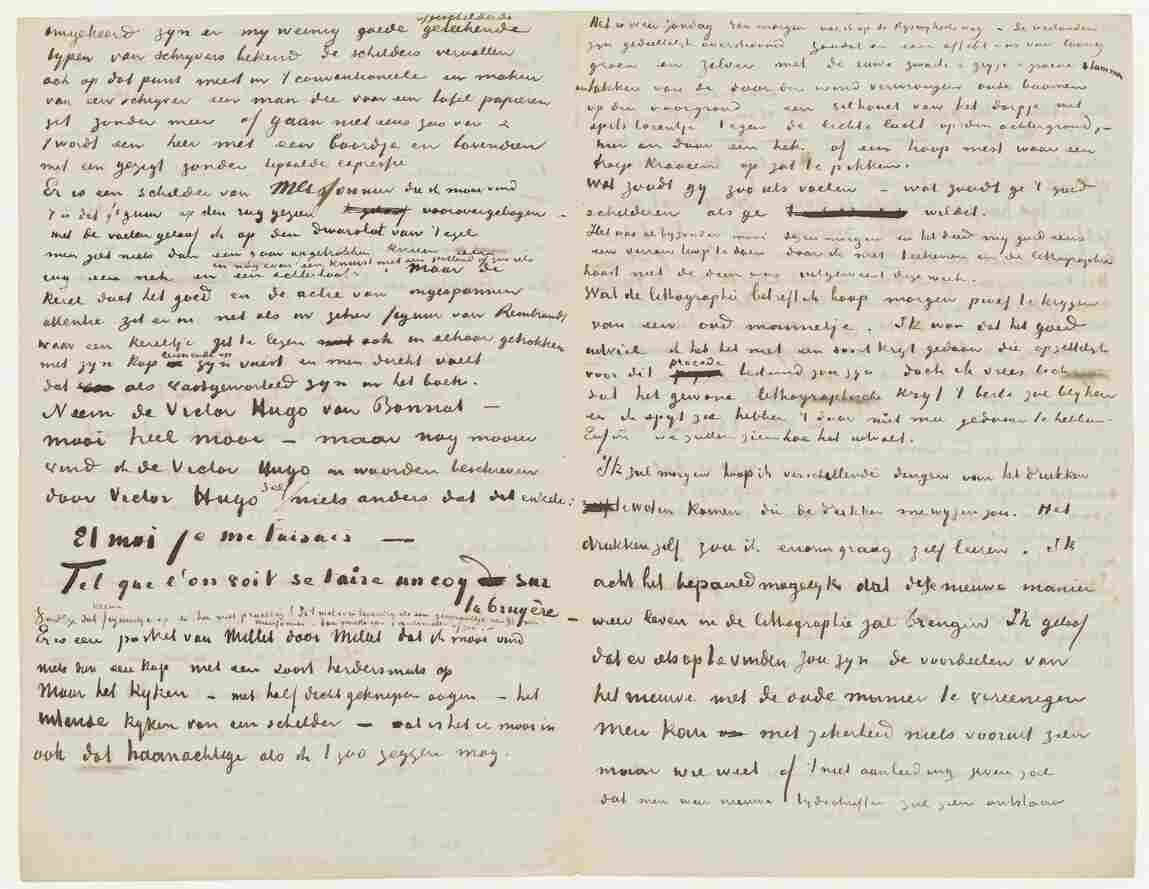 omgekeerd zyn er my weinig goede geschilderde geteekende
typen van schryvers bekend de schilders vervallen
ook op dat punt meest in 't conventionele en maken
van een schryver een man die voor een tafel papieren
zit zonder meer of gaan niet eens zoo ver &
't wordt een heer met een boordje en bovendien
met een gezigt zonder bepaalde expressie
Er is een schilder van Meissonnier die ik mooi vind
't is dat figuur op den rug gezien voorovergebogen -
met de voeten geloof ik op den dwarslat van 't ezel
men ziet niets dan een paar opgetrokken knieen
een rug een nek en een achterhoofd en nog even een knuist met een potlood of zoo iets
Maar de
kerel doet het goed en de actie van ingespannen
attentie zit er in net als in zeker figuur van Rembrandt
waar een kereltje zit te lezen ook in elkaar getrokken
met zyn kop leunend op zyn vuist en men direct voelt
dat als vastgeworteld zyn in het boek.
Neem de Victor Hugo van Bonnat -
mooi heel mooi - maar nog mooier
vind ik de Victor Hugo in woorden beschreven
door Victor Hugo zelf niets anders dat dit enkele:
Et moi je me taisais —
Tel que l'on voit se taire un coq sur
la bruyère -
Vindt je dat figuurtje op de hei niet prachtig
Er is een portret van Millet door Millet dat ik mooi vind
niets dan een kop met een soort herdersmuts op
Maar het kyken - met half dicht geknepen oogen - het
intense kyken van een schilder - wat is het er mooi in
ook dat haanachtige als ik 't zoo zeggen mag.
Het is weer zondag. Van morgen was ik op de Ryswykschen weg - de weilanden
zyn gedeeltelyk overstroomd zoodat er een effekt was van toonig
groen en zilver met de ruwe zwarte & gryze & groene stammen
en takken van de door den wind verwrongen oude boomen
op den voorgrond - een silhouet van het dorpje met
spits torentje tegen de lichte lucht op den achtergrond, -
hier en daar een hek. of een hoop mest waar een
troep kraaien op zat te pikken.
Wat zoudt gy zoo iets voelen - wat zoudt ge 't goed
schilderen als ge wildet.
Het was er byzonder mooi dezen morgen en het deed my goed eens
een verren loop te doen door ik met teekenen en de lithographie
haast niet de deur was uitgeweest deze week.
Wat de lithographie betreft ik hoop morgen proef te krygen
van een oud mannetje. Ik hoop dat het goed
uitvalt ik heb het met een soort kryt gedaan die opzettelyk
voor dit procede bestemd zou zyn doch ik vrees toch
dat het gewone lithographische kryt 't beste zal blyken
en ik spyt zal hebben 't daar niet mee gedaan te hebben
Enfin we zullen zien hoe het uitvalt.
Ik zal morgen hoop ik verschillende dingen van het drukken
te weten komen die de drukker me wyzen zou. Het
drukken zelf zou ik enorm graag zelf leeren. Ik
acht het bepaald mogelyk dat deze nieuwe manier
weer leven in de lithographie zal brengen Ik geloof
dat er iets op te vinden zou zyn de voordeelen van
het nieuwe met de oude manier te vereenigen
Men kan met zekerheid niets vooruit zien
maar wie weet of 't niet aanleiding geven zal
dat men weer nieuwe tydschriften zal zien ontstaan